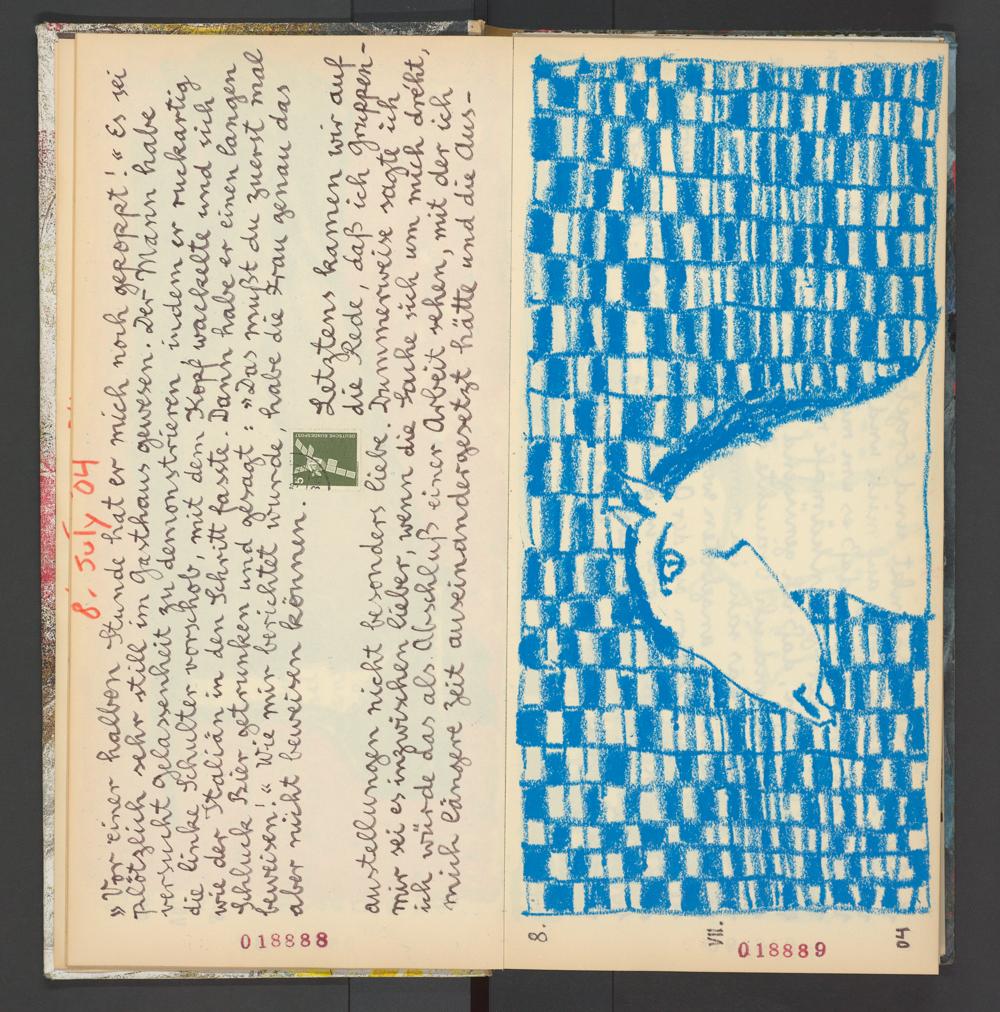 8. July 04
»Vor einer halben Stunde hat er mich noch gepoppt!« Es sei
plötzlich sehr still im Gasthaus gewesen. Der Mann habe
versucht Gelassenheit zu demonstrieren indem er ruckartig
die linke Schulter vorschob, mit dem Kopf wackelte und sich
wie der Italiän in den Schritt fasste. Dann habe er einen langen
Schluck Bier getrunken und gesagt: »Das mußt du zuerst mal
beweisen!« Wie mir berichtet wurde, habe die Frau genau das
aber nicht beweisen können.
DEUTSCHE BUNDESPOST
5
Letztens kamen wir auf
die Rede, daß ich Gruppen-
ausstellungen nicht besonders liebe. Dummerweise sagte ich
mir sei es inzwischen lieber, wenn die Sache sich um mich dreht,
ich würde das als Abschluß einer Arbeit sehen, mit der ich
mich längere Zeit auseinandergesetzt hätte und die Aus-
018888
8.
VII.
04
018889